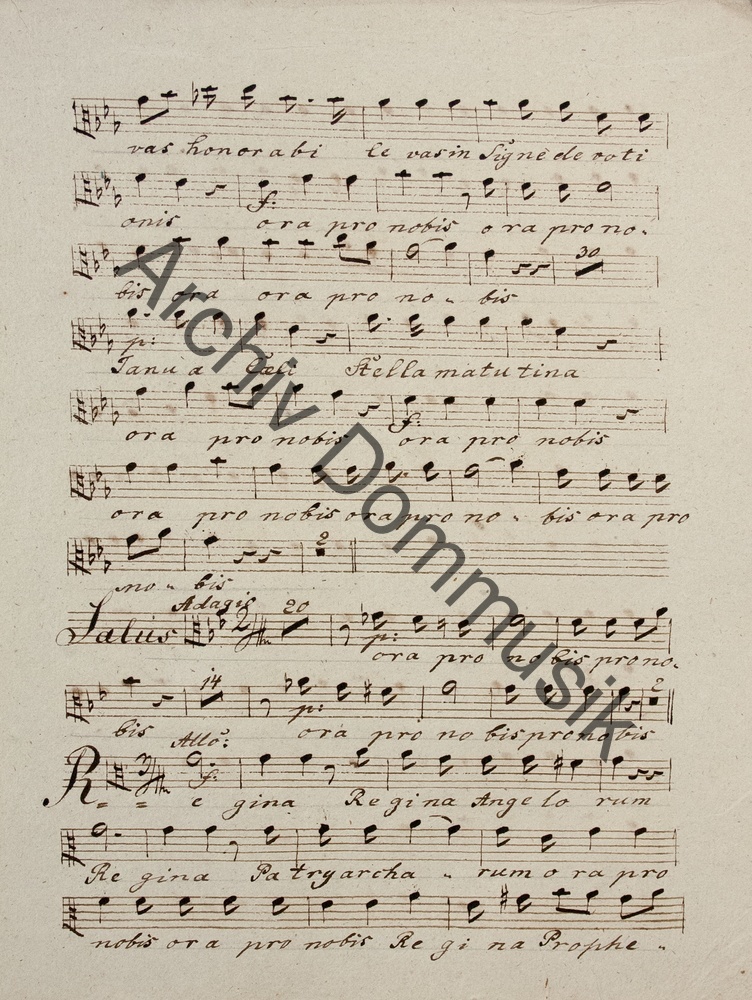 vas honorabi le vas in Signe de voti
f:
onis ora pro nobis ora pro no-
30
bis ora ora pro no - bis
p:
Janua Cæli Stella matutina
f:
ora pro nobis ora pro nobis
ora pro nobis ora pro no - bis ora pro
2
no - bis
Adagio
Salus 2 20 p:
ora pro nobis pro no-
14 2
p:
bis ora pro nobis pro nobis
Allo:
3 f:
R = = e gina Regina Angelo rum
Re gina Patryarcha - rum ora pro
nobis ora pro nobis Re gi na Prophe -
Archiv Dommusik